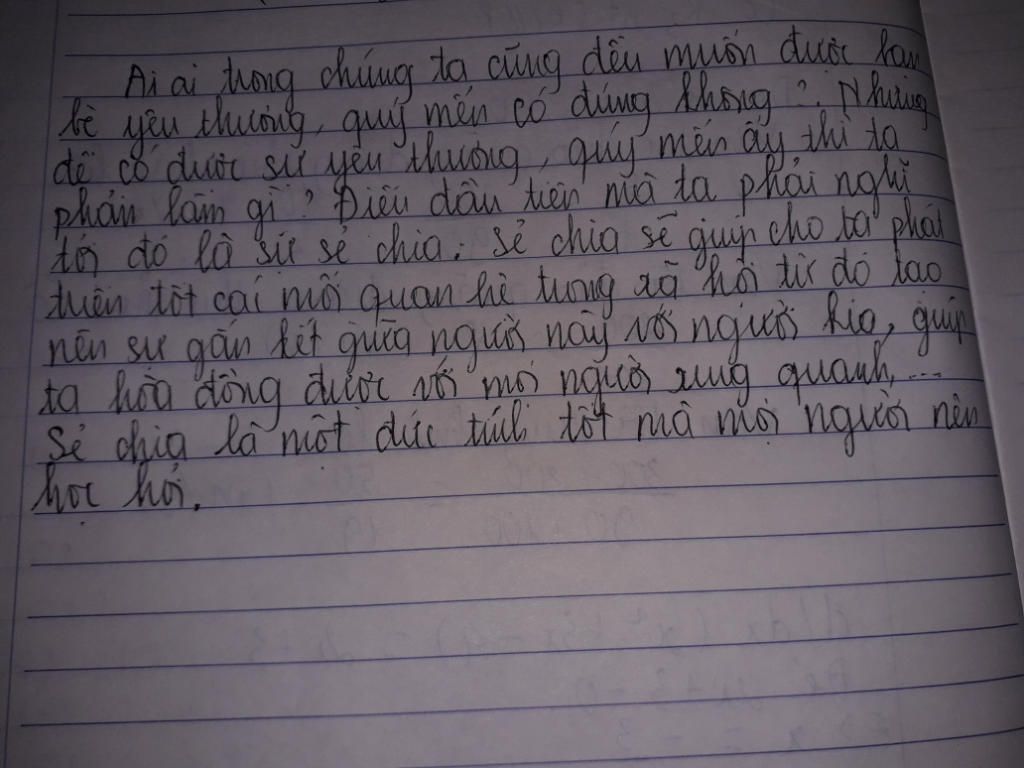 Ai ai trong chúng ta cũng đều muốn được bạn
bè yêu thương, quý mến có đúng không?. Nhưng
để có được sự yêu thương, quý mến ấy thì ta
phải làm gì? Điều đầu tiên mà ta phải nghĩ
tới đó là sự sẻ chia. Sẻ chia sẽ giúp cho ta phát
triển tốt cái mối quan hệ trong xã hội từ đó tạo
nên sự gắn kết giữa người này với người kia, giúp
ta hòa đồng được với mọi người xung quanh,...
Sẻ chia là một đức tính tốt mà mọi người nên
học hỏi.